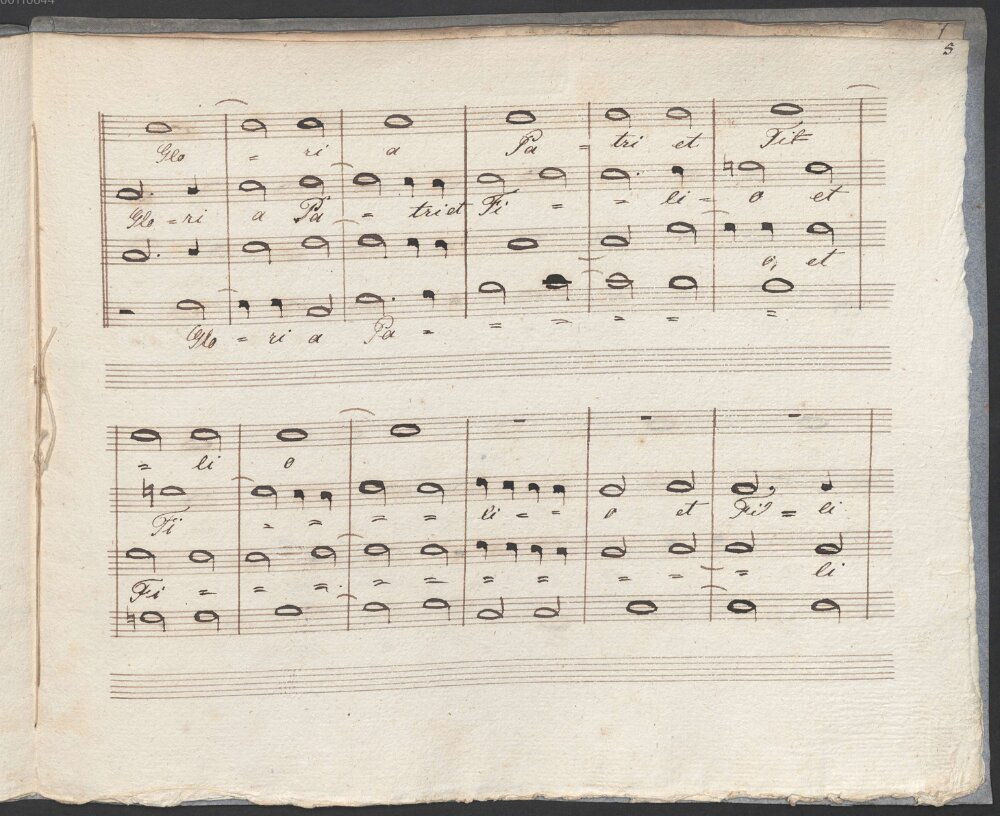 7
5
Glo = ri a Pa = tri et Fil
Glo = ri a Pa = tri et Fi = = li = o et
o, et
Glo = ri a Pa = = = = = =
= li o
Fi = = = = li = = o et Fil = li
Fi = = = = = = = = = = li